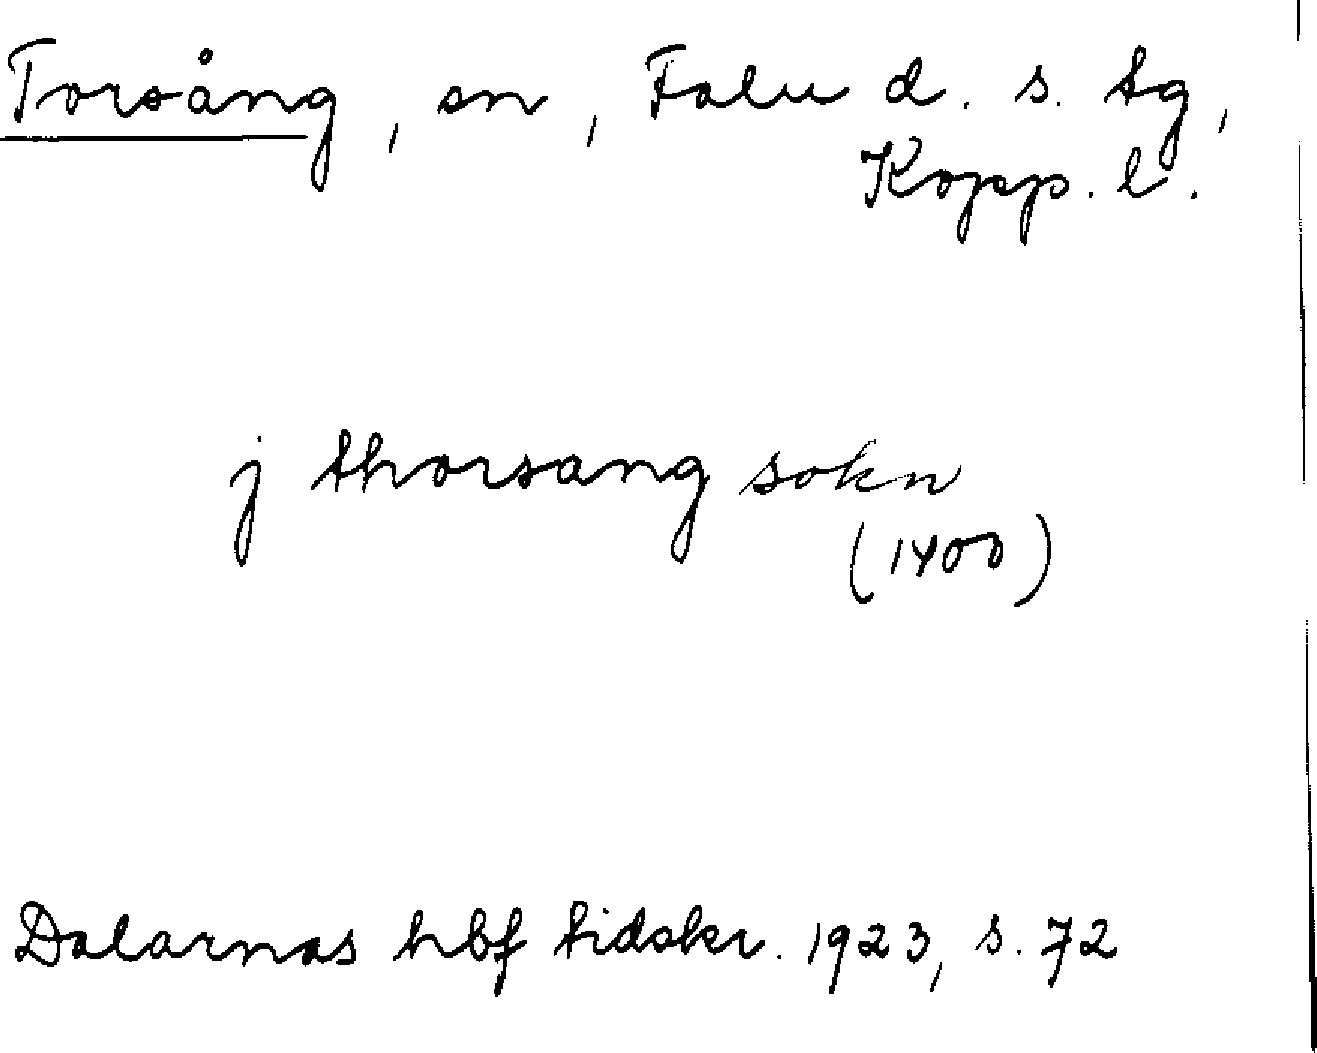 Torsång, sn, Falu d. s. tg,
Kopp. l.
j thorsang sokn
(1400)
Dalarnas hbf tidskr. 1923, s. 72